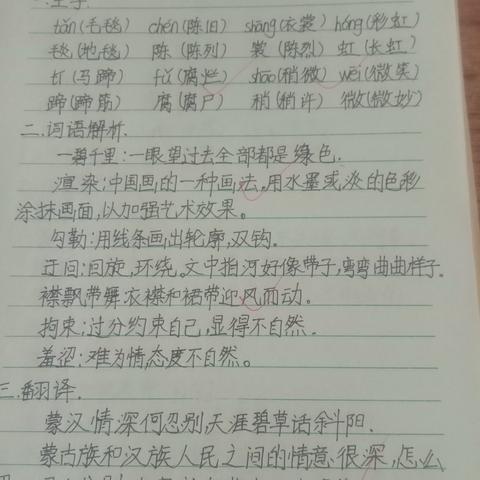 一.生字
tǎn(毛毯) chén(陈旧) shang(衣裳) hóng(彩虹)
毯(地毯) 陈(陈列) 裳(陈烈) 虹(长虹)
tí(马蹄) fǔ(腐烂) shāo(稍微) wēi(微笑)
蹄(蹄筋) 腐(腐尸) 稍(稍许) 微(微妙)
二.词语解析.
一碧千里:一眼望过去全部都是绿色.
渲染:中国画的一种画法,用水墨或淡的色彩
涂抹画面,以加强艺术效果。
勾勒:用线条画出轮廓,双钩.
迂回:回旋,环绕,文中指河好像带子,弯弯曲曲样子.
襟飘带舞:衣襟和裙带迎风而动。
拘束:过分约束自己,显得不自然.
羞涩:难为情态度不自然。
三.翻译.
蒙汉情深何忍别,天涯碧草话斜阳.
蒙古族和汉族人民之间的情意很深,怎么